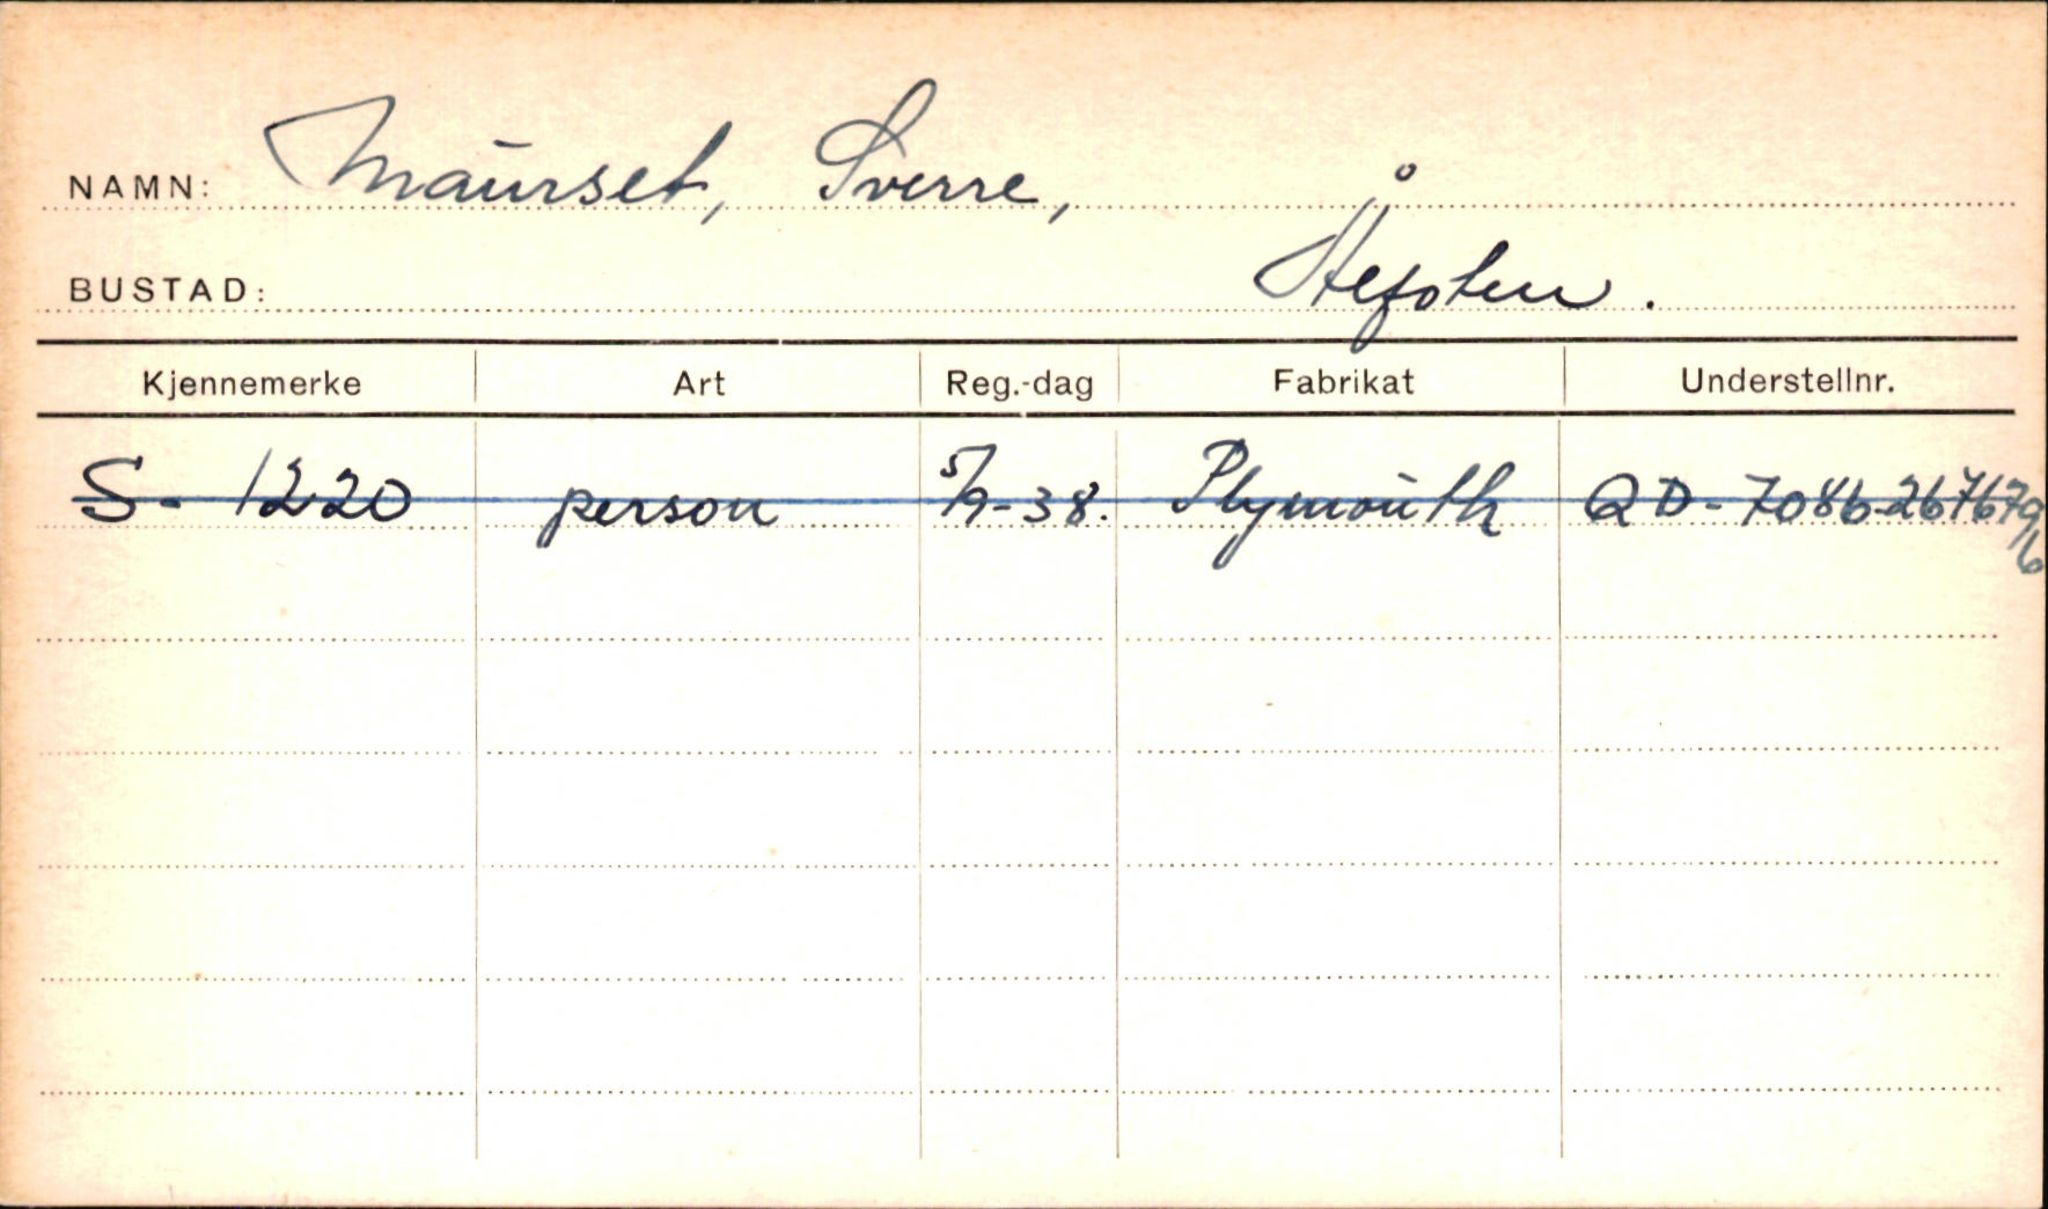 NAMN: Maurset, Sverre,
BUSTAD:
Kjennemerke Art Reg.-dag Fabrikat Understellnr.
S-1220 person 5/9-38. Plymouth QD-7086-267679
6